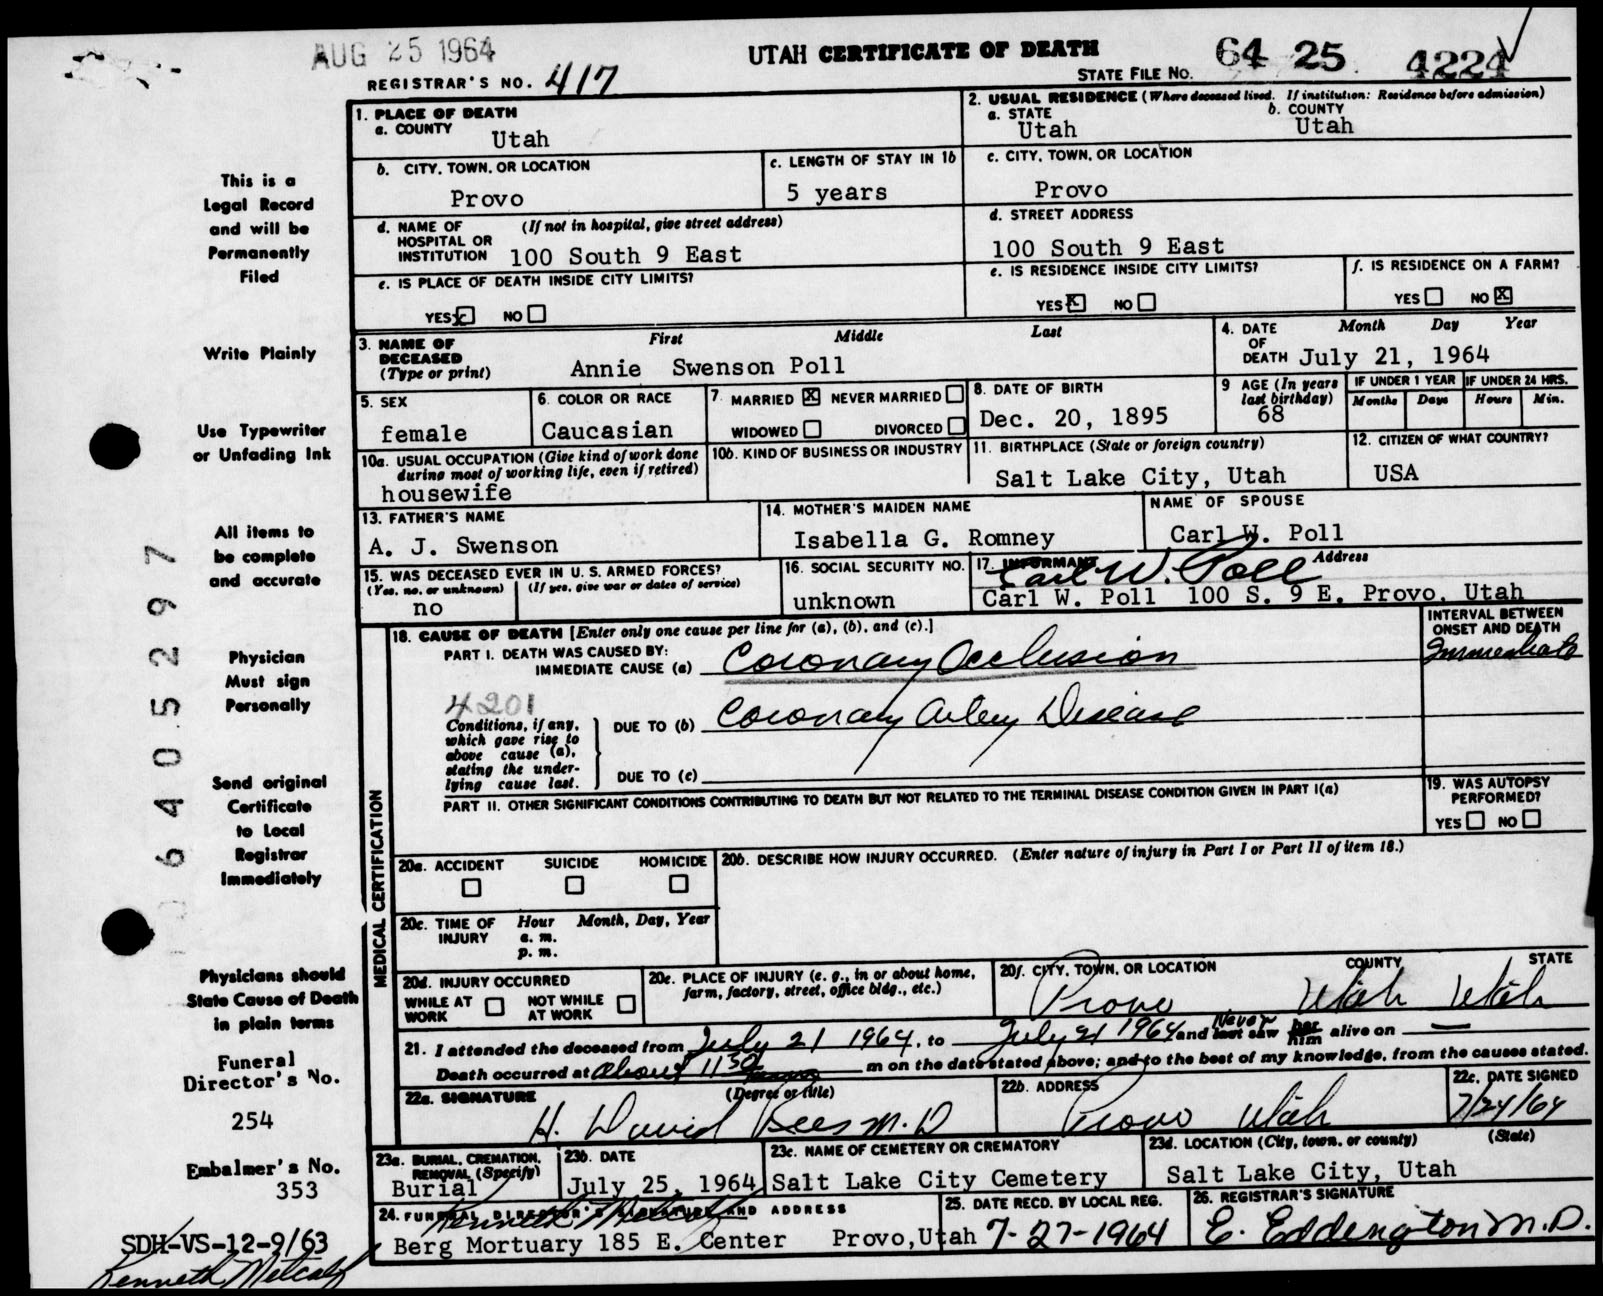 AUG 25 1964
UTAH CERTIFICATE OF DEATH
64 25 4224
REGISTRAR'S NO. 417
STATE FILE NO.
1. PLACE OF DEATH
a. COUNTY
Utah
2. USUAL RESIDENCE (Where deceased lived. If institution: Residence before admission)
a. STATE
Utah
b. COUNTY
Utah
b. CITY, TOWN, OR LOCATION
Provo
c. LENGTH OF STAY IN 1b
5 years
c. CITY, TOWN, OR LOCATION
Provo
d. NAME OF HOSPITAL OR INSTITUTION (If not in hospital, give street address)
100 South 9 East
d. STREET ADDRESS
100 South 9 East
e. IS PLACE OF DEATH INSIDE CITY LIMITS?
YES X NO
e. IS RESIDENCE INSIDE CITY LIMITS?
YES X NO
f. IS RESIDENCE ON A FARM?
YES NO X
3. NAME OF DECEASED (Type or print)
First Middle Last
Annie Swenson Poll
4. DATE OF DEATH
Month Day Year
July 21, 1964
5. SEX
female
6. COLOR OR RACE
Caucasian
7. MARRIED X NEVER MARRIED
WIDOWED DIVORCED
8. DATE OF BIRTH
Dec. 20, 1895
9 AGE (In years last birthday)
68
IF UNDER 1 YEAR
Months Days
IF UNDER 24 HRS.
Hours Min.
10a. USUAL OCCUPATION (Give kind of work done during most of working life, even if retired)
housewife
10b. KIND OF BUSINESS OR INDUSTRY
11. BIRTHPLACE (State or foreign country)
Salt Lake City, Utah
12. CITIZEN OF WHAT COUNTRY?
USA
13. FATHER'S NAME
A. J. Swenson
14. MOTHER'S MAIDEN NAME
Isabella G. Romney
NAME OF SPOUSE
Carl W. Poll
15. WAS DECEASED EVER IN U. S. ARMED FORCES?
(Yes, no, or unknown) (If yes, give war or dates of service)
no
16. SOCIAL SECURITY NO.
unknown
17. INFORMANT Address
Carl W. Poll
Carl W. Poll 100 S. 9 E. Provo, Utah
MEDICAL CERTIFICATION
18. CAUSE OF DEATH [Enter only one cause per line for (a), (b), and (c).]
INTERVAL BETWEEN ONSET AND DEATH
PART I. DEATH WAS CAUSED BY:
IMMEDIATE CAUSE (a) Coronary Occlusion
Immediate
4201
Conditions, if any, which gave rise to above cause (a), stating the underlying cause last.
DUE TO (b) Coronary Artery Disease
DUE TO (c)
PART II. OTHER SIGNIFICANT CONDITIONS CONTRIBUTING TO DEATH BUT NOT RELATED TO THE TERMINAL DISEASE CONDITION GIVEN IN PART I(a)
19. WAS AUTOPSY PERFORMED?
YES NO
20a. ACCIDENT SUICIDE HOMICIDE
20b. DESCRIBE HOW INJURY OCCURRED. (Enter nature of injury in Part I or Part II of item 18.)
20c. TIME OF INJURY
Hour Month, Day, Year
a. m.
p. m.
20d. INJURY OCCURRED
WHILE AT WORK NOT WHILE AT WORK
20e. PLACE OF INJURY (e. g., in or about home, farm, factory, street, office bldg., etc.)
20f. CITY, TOWN, OR LOCATION COUNTY STATE
Provo Utah Utah
21. I attended the deceased from July 21 1964, to July 21 1964 and Never last saw her him alive on —
Death occurred at About 1130 m on the date stated above; and to the best of my knowledge, from the causes stated.
22a. SIGNATURE (Degree or title)
H. David Bees M.D
22b. ADDRESS
Provo Utah
22c. DATE SIGNED
7/24/64
23a. BURIAL, CREMATION, REMOVAL (Specify)
Burial
23b. DATE
July 25, 1964
23c. NAME OF CEMETERY OR CREMATORY
Salt Lake City Cemetery
23d. LOCATION (City, town, or county) (State)
Salt Lake City, Utah
24. FUNERAL DIRECTOR'S SIGNATURE AND ADDRESS
Kenneth Metcalf
Berg Mortuary 185 E. Center Provo, Utah
25. DATE RECD. BY LOCAL REG.
7-27-1964
26. REGISTRAR'S SIGNATURE
E. Eddington M.D.
This is a
Legal Record
and will be
Permanently
Filed
Write Plainly
Use Typewriter
or Unfading Ink
All items to
be complete
and accurate
Physician
Must sign
Personally
Send original
Certificate
to Local
Registrar
Immediately
Physicians should
State Cause of Death
in plain terms
Funeral
Director's No.
254
Embalmer's No.
353
SDH-VS-12-9/63
Kenneth Metcalf
640 5297